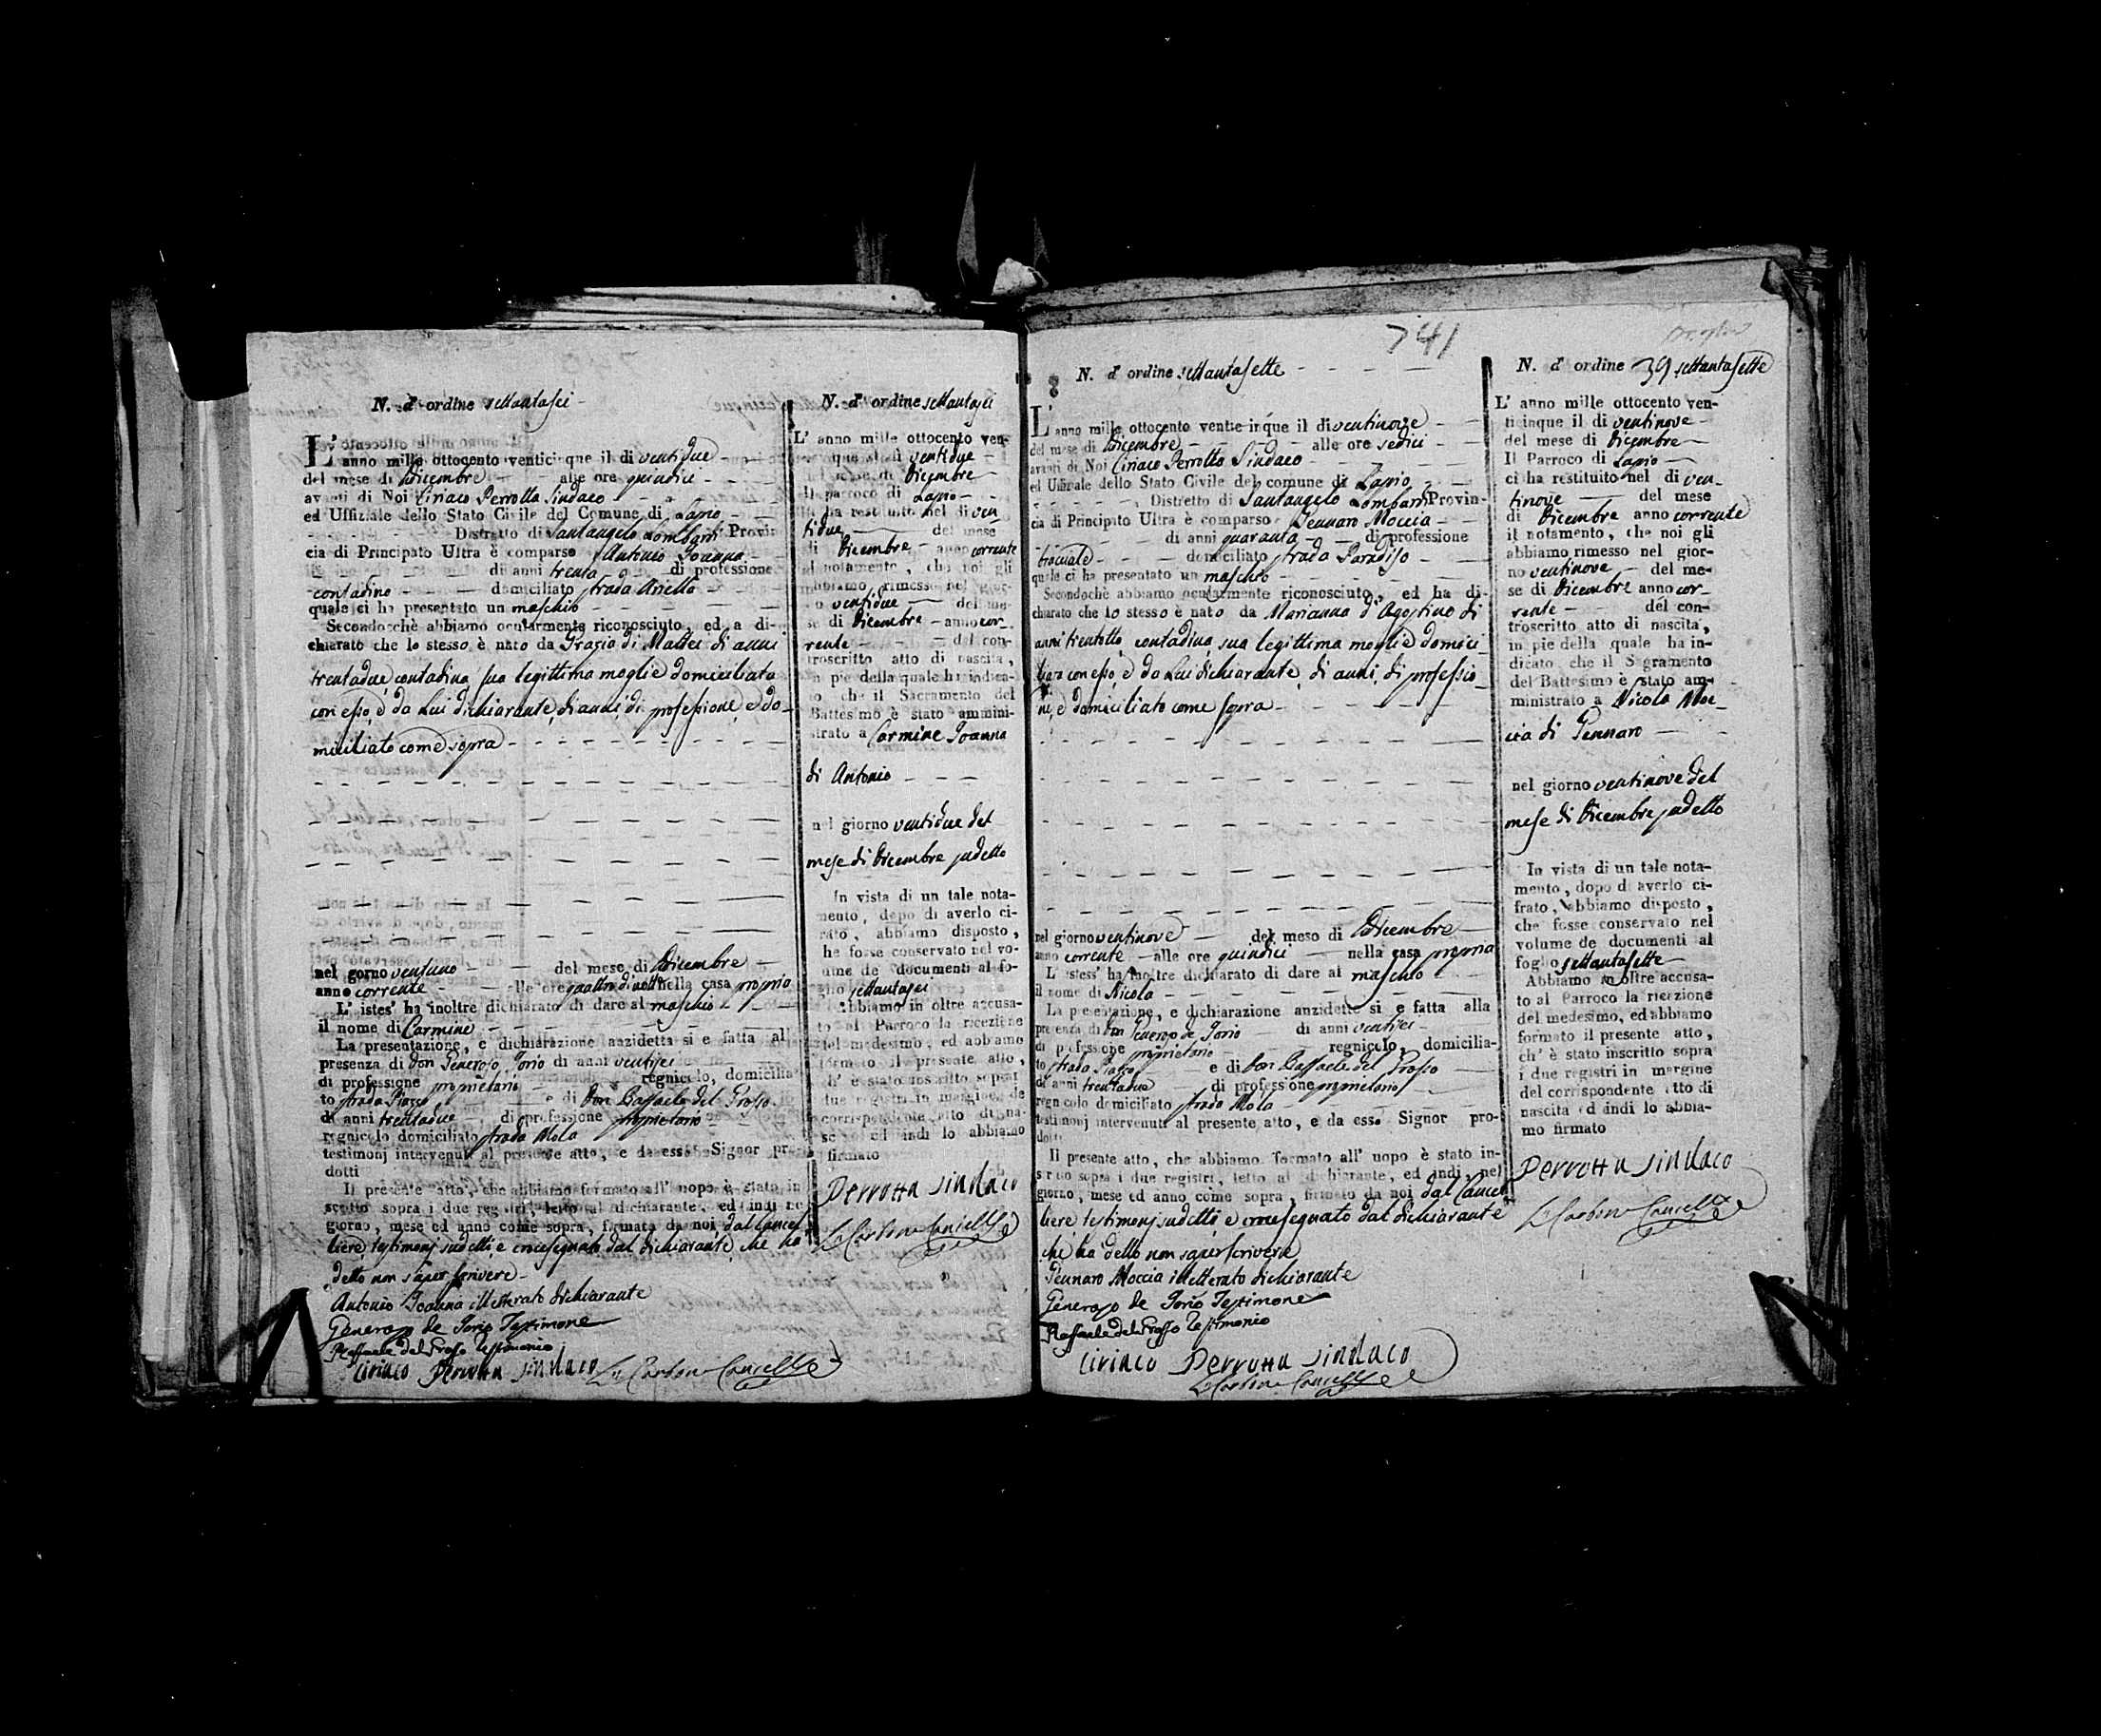 N. d' ordine settantasei
L' anno mille ottocento venticinque il di ventidue
del mese di Dicembre alle ore quindici
avanti di Noi Ciriaco Perrotta Sindaco
ed Uffiziale dello Stato Civile del Comune di Lapio
Distretto di Santangelo Lombardi Provin
cia di Principato Ultra è comparso Antonio Joanna
di anni trenta di professione
contadino domiciliato strada Ariella
quale ci ha presentato un maschio
Secondocchè abbiamo ocularmente riconosciuto, ed a di-
chiarato che lo stesso è nato da Grazia di Mattei di anni
trentadue, contadina sua legittima moglie domiciliata
con esso, e da Lui dichiarante, di anni, di professione, e do-
miciliato come sopra
nel gorno ventuno del mese di Dicembre
anno corrente alle ore quattro di notte nella casa propria
L' istes' ha inoltre dichiarato di dare al maschio
il nome di Carmine
La presentazione, e dichiarazione anzidetta si e fatta al
presenza di Don Generoso Jorio di anni ventisei
di professione proprietario regnicolo, domicilia
to strada Piazza e di Don Raffaele del Grosso
di anni trentadue di professione proprietario
regnicolo domiciliato strada Mola
testimonj intervenuti al presente atto, e da esso Signor pro
dotti
Il presente atto, che abbiamo formato all' uopo è stato in
scritto sopra i due registri, letto al dichiarante, ed indi ne
giorno, mese ed anno come sopra, firmato da noi dal Cancel
liere, testimonj sudetti, e crocesegnato dal dichiarante, che ha
detto non saper scrivere
Antonio Joanna illetterato dichiarante
Generoso de Jorio Testimone
Raffaele del Grosso testimonio
Ciriaco Perrotta Sindaco
N. d' ordine settantasei
L' anno mille ottocento ven-
que il di ventidue
del mese di Dicembre
Il parroco di Lapio
ci ha restituito nel di ven
tidue del mese
di Dicembre anno corrente
il notamento, che noi gli
abbiamo rimesso nel gior-
no ventidue del me-
se di Dicembre anno cor-
rente del con-
troscritto atto di nascita,
in pie della quale ha indica-
to che il Sacramento del
Battesimo è stato ammini-
strato a Carmine Joanna
di Antonio
nel giorno ventidue del
mese di Dicembre sudetto
In vista di un tale nota-
mento, depo di averlo ci-
frato, abbiamo disposto,
che fosse conservato nel vo-
lume de documenti al fo-
glio settantasei
Abbiamo in oltre accusa-
to al Parroco la ricezione
del medesimo, ed abbiamo
formato il presente atto,
ch' è stato inscritto sopra i
due registri in margine de
corrispondente atto di na-
scita ed indi lo abbiamo
firmato
Perrotta Sindaco
741
N. d' ordine settantasette
L' anno mille ottocento venticinque il di ventinove
del mese di Dicembre alle ore sedici
avanti di Noi Ciriaco Perrotta Sindaco
ed Uffiziale dello Stato Civile del comune di Lapio
Distretto di Santangelo Lombardi Provin-
cia di Principato Ultra è comparso Gennaro Moccia
di anni quaranta di professione
domiciliato strada Paradiso
quale ci ha presentato un maschio
Secondochè abbiamo ocularmente riconosciuto, ed ha di-
chiarato che lo stesso è nato da Marianna d'Agostino di
anni trentotto, contadina, sua legittima moglie domici-
liata con esso, e da Lui dichiarante, di anni, di professio-
ne, e domiciliato come sopra
nel giorno ventinove del meso di Dicembre
anno corrente alle ore quindici nella casa propria
L' istess' ha inoltre dichiarato di dare al maschio
il nome di Nicola
La presentazione, e dichiarazione anzidette si e fatta alla
presenza di Don Generoso de Jorio di anni ventisei
di professione proprietario regnicolo, domicilia-
to strada Piazza e di Don Raffaele del Grosso
di anni trentadue di professione proprietario
regnicolo domiciliato strada Mola
testimonj intervenuti al presente atto, e da esso Signor pro-
dotti
Il presente atto, che abbiamo formato all' uopo è stato in-
scritto sopra i due registri, letto al dichiarante, ed indi, nel
giorno, mese ed anno come sopra, firmato da noi dal Cancel
liere testimonj sudetti, e crocesegnato dal dichiarante
che ha detto non saper scrivere
Gennaro Moccia illetterato dichiarante
Generoso de Jorio Testimone
Raffaele del Grosso testimonio
Ciriaco Perrotta Sindaco
N. d' ordine 39 settantasette
L' anno mille ottocento ven-
ticinque il di ventinove
del mese di Dicembre
Il Parroco di Lapio
ci ha restituito nel di ven-
tinove del mese
di Dicembre anno corrente
il notamento, che noi gli
abbiamo rimesso nel gior-
no ventinove del me-
se di Dicembre anno cor-
rente del con-
troscritto atto di nascita,
in pie della quale ha in-
dicato che il Sagramento
del Battesimo è stato am-
ministrato a Nicola Moc-
cia di Gennaro
nel giorno ventinove del
mese di Dicembre sudetto
In vista di un tale nota-
mento, dopo di averlo ci-
frato, abbiamo disposto,
che fosse conservato nel
volume de documenti al
foglio settantasette
Abbiamo in oltre accusa-
to al Parroco la ricezione
del medesimo, ed abbiamo
formato il presente atto,
ch' è stato inscritto sopra
i due registri in margine
del corrispondente atto di
nascita ed indi lo abbia-
mo firmato
Perrotta Sindaco